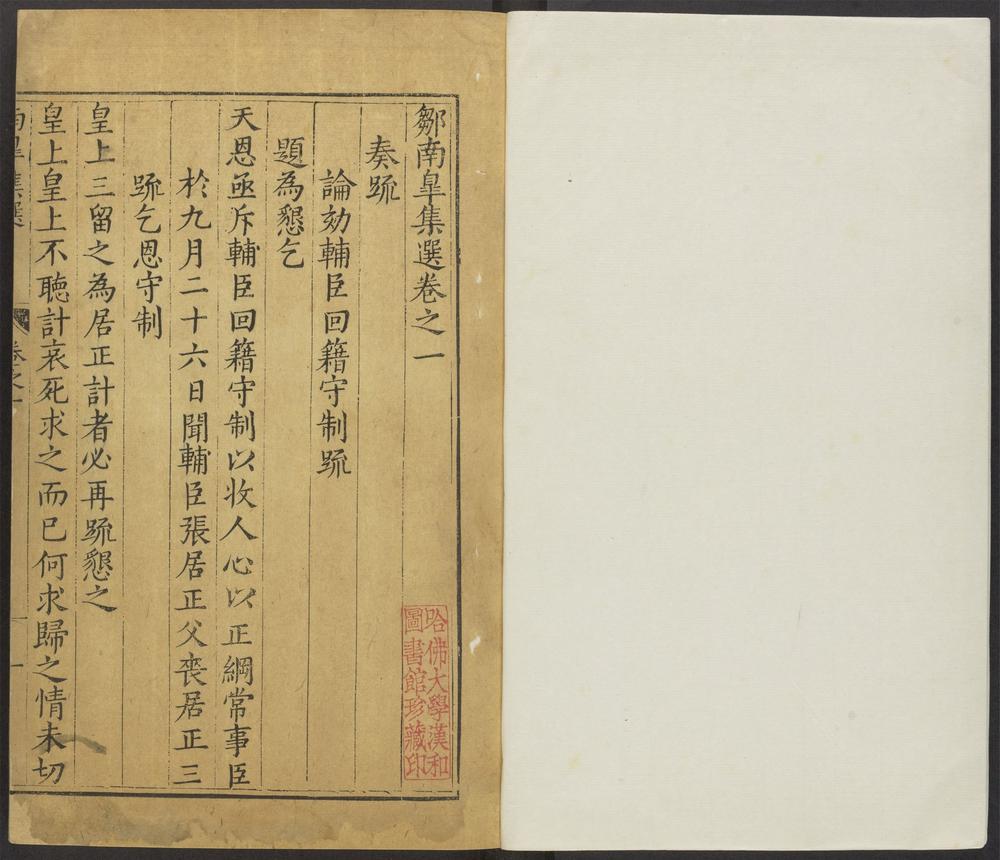 鄒南臯集選卷之一
奏疏
論劾輔臣回籍守制疏
題為懇乞
天恩亟斥輔臣回籍守制以收人心以正綱常事臣
於九月二十六日聞輔臣張居正父喪居正三
疏乞恩守制
皇上三留之為居正計者必再疏懇之
皇上皇上不聽計哀死求之而已何求歸之情未切
南臯集選
卷之一
一
哈佛大學漢和
圖書館珍藏印